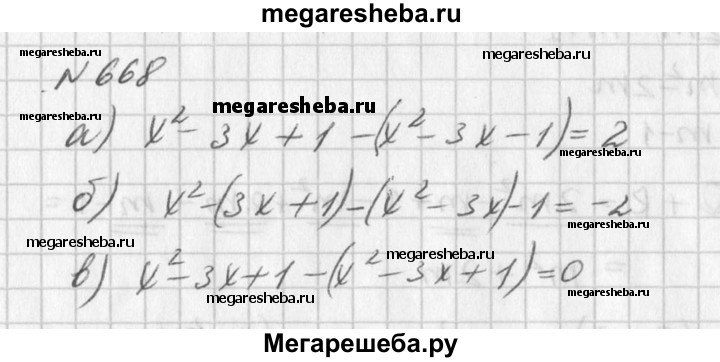 megaresheba.ru
megaresheba.ru
megaresheba.ru
N 668
megaresheba.ru
а) x² - 3x + 1 - (x² - 3x - 1) = 2
megaresheba.ru
megaresheba.ru
megaresheba.ru
б) x² - (3x + 1) - (x² - 3x) - 1 = -2
megaresheba.ru
megaresheba.ru
megaresheba.ru
в) x² - 3x + 1 - (x² - 3x + 1) = 0
megaresheba.ru
megaresheba.ru
Мегарешеба.ру